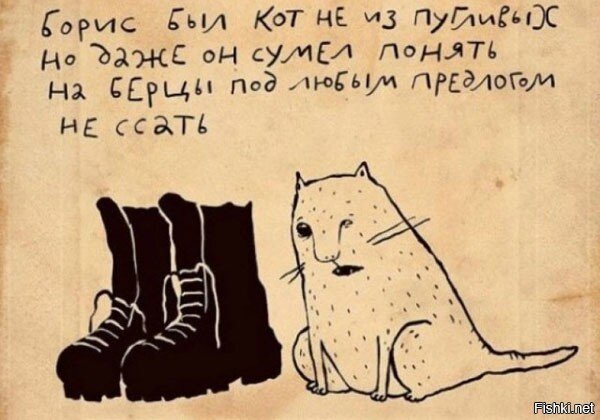 Борис был кот не из пугливых
но даже он сумел понять
на берцы под любым предлогом
не ссать
Fishki.net